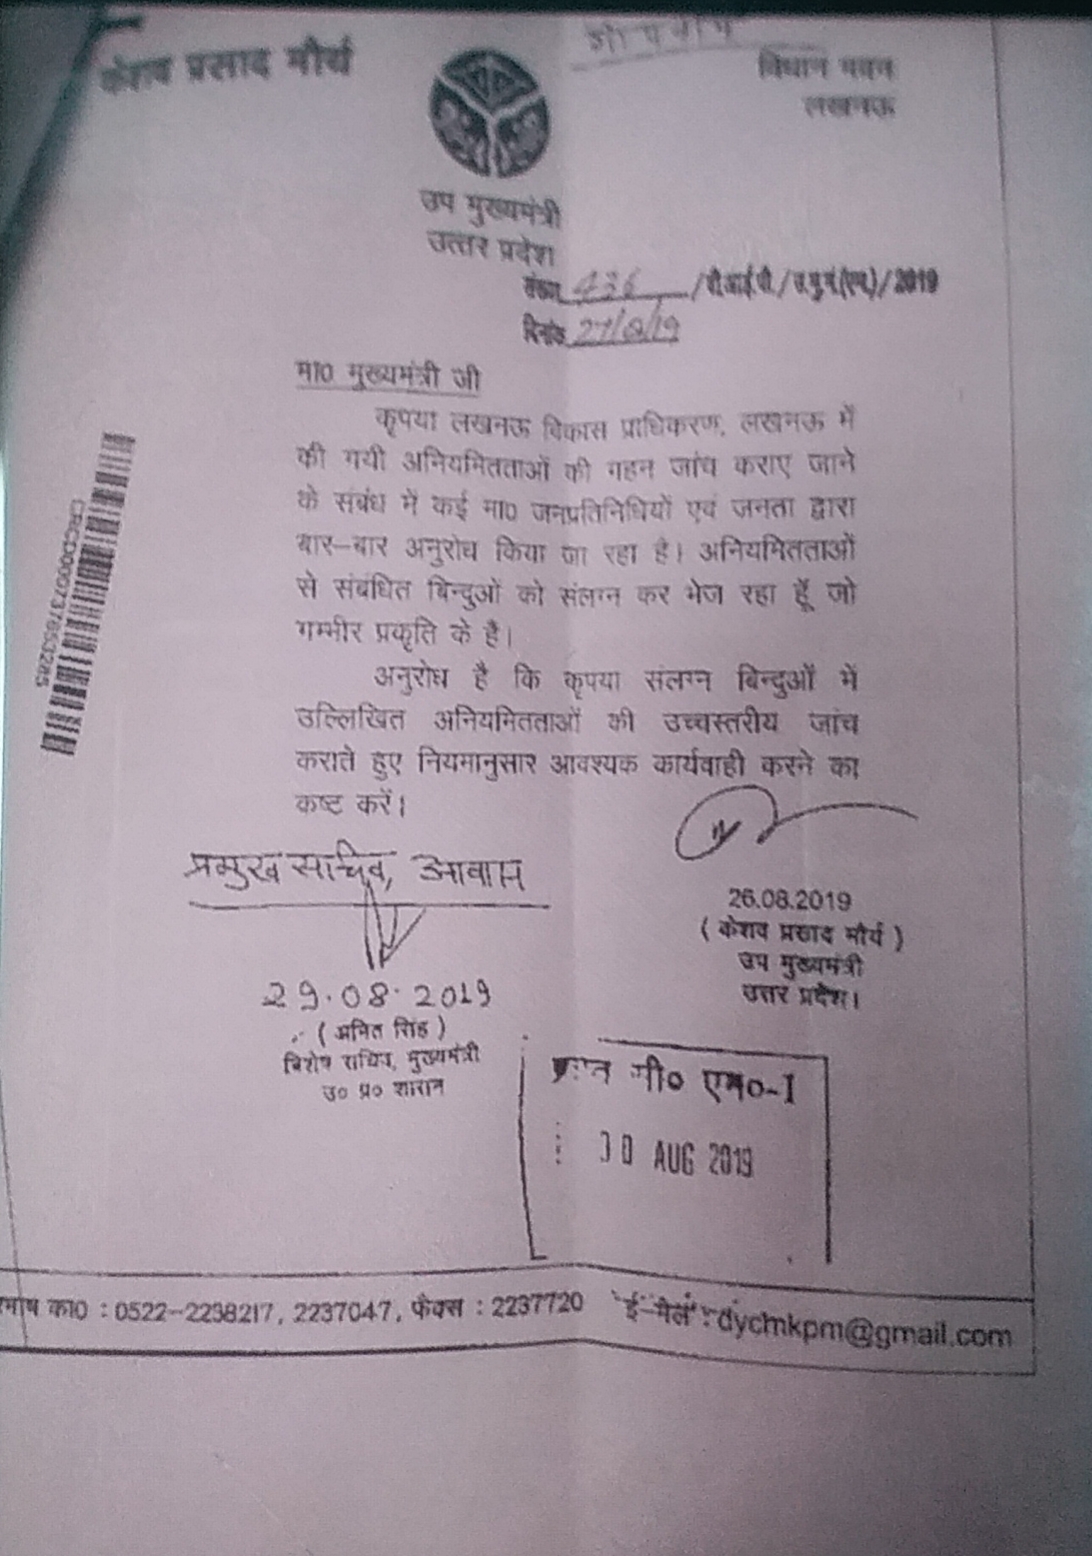 गोपनीय
केशव प्रसाद मौर्य
विधान भवन
लखनऊ
उप मुख्यमंत्री
उत्तर प्रदेश
संख्या 436 /वी.आई.पी./उ.मु.मं.(एम)/2019
दिनांक 27/8/19
मा0 मुख्यमंत्री जी
कृपया लखनऊ विकास प्राधिकरण, लखनऊ में
की गयी अनियमितताओं की गहन जांच कराए जाने
के संबंध में कई मा0 जनप्रतिनिधियों एवं जनता द्वारा
बार-बार अनुरोध किया जा रहा है। अनियमितताओं
से संबंधित बिन्दुओं को संलग्न कर भेज रहा हूँ जो
गम्भीर प्रकृति के है।
अनुरोध है कि कृपया संलग्न बिन्दुओं में
उल्लिखित अनियमितताओं की उच्चस्तरीय जांच
कराते हुए नियमानुसार आवश्यक कार्यवाही करने का
कष्ट करें।
CRCD000737653285
प्रमुख सचिव, आवास
26.08.2019
( केशव प्रसाद मौर्य )
उप मुख्यमंत्री
उत्तर प्रदेश।
29.08.2019
( अमित सिंह )
विशेष सचिव, मुख्यमंत्री
उ० प्र० शासन
सी० एम०-1
30 AUG 2019
का0 : 0522-2238217, 2237047, फैक्स : 2237720 ई-मेल : dychkpm@gmail.com